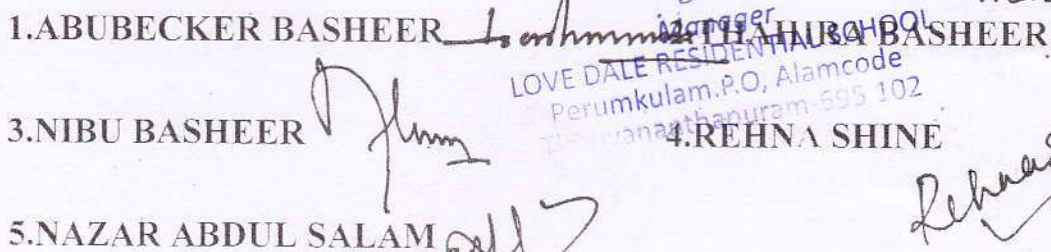 1.ABUBECKER BASHEER THAHIRA BASHEER
Manager
LOVE DALE RESIDENTIAL SCHOOL
Perumkulam.P.O, Alamcode
695 102
3.NIBU BASHEER 4.REHNA SHINE
5.NAZAR ABDUL SALAM